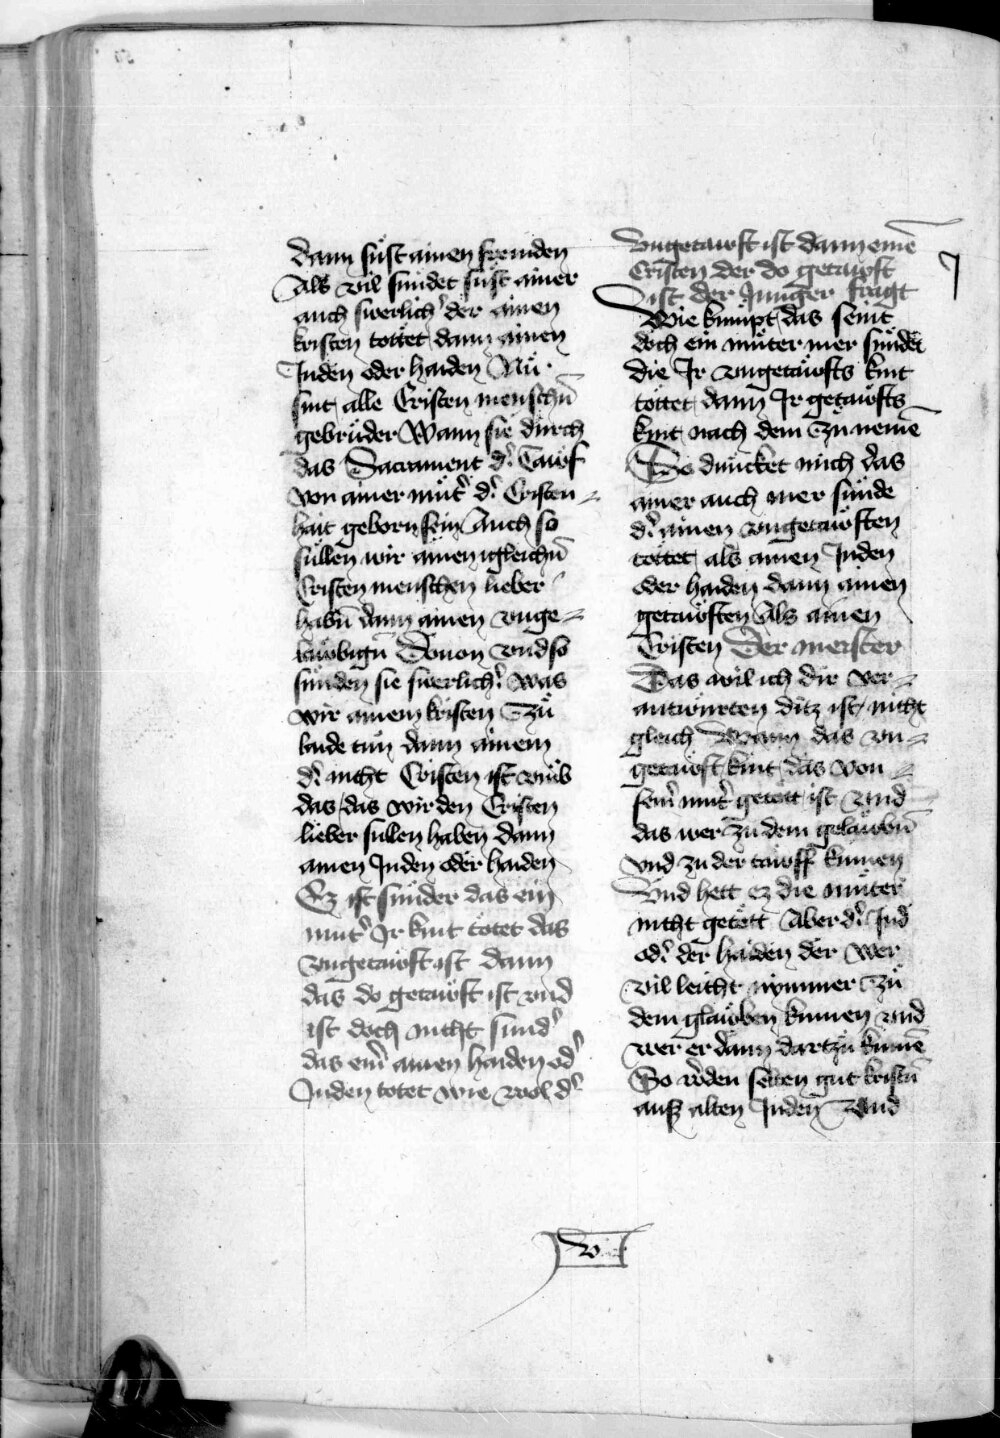 dann süst ainen fremden
Als vil sündet süst ainer
auch swerlich̕ der ainen
kristen tottet dann ainen
Juden oder haiden Nü
sint alle Cristen menschn̄
gebrüder Wann sie dürch
das Sacrament d̕ Tauf
von ainer müt̕ d̕ Cristen
hait geborn sein Auch so
süllen wir ainen igleichn̄
Cristen menschen lieber
habn̄ dann ainen vnge
laubign̄ Douon vnd so
sünden sie swerlich̕ was
wir ainem kristen Zü
laide tün dann ainem
d̕ nicht Cristen ist vmb
das das wir den Cristen
lieber sullen haben dann
ainen Juden oder haiden
Ez ist sünder das ein
mut̕ Ir kint totet das
vngetauft ist dann
das do getauft ist vnd
ist doch nicht sund̕
das ein̕ ainen haiden od̕
Juden totet wie wol d̕
Vngetauft ist dann einē
Cristen der do getauft
ist der Junger fragt
Wie kumpt das seint
doch ein müter mer sündet
die Ir vngetaufts kint
tottet dann Ir getaufts
kint nach dem Zü nemē
So duncket mich das
ainer auch mer sünde
d̕ ainen vngetauften
tottet als ainen Juden
oder haiden dann ainen
getauften Als ainen
Cristen Der meister
Das wil ich dir ver
antwurten ditz ist nicht
gleich Wann das vn
getauft kint das von
sein̕ mut̕ getött ist Vnd
das wer zu dem gelaubn̄
vnd zu der tauff kumen
Vnd hett ez die muter
nicht getött Aber d̕ Jud
od̕ der haiden der wer
vil leicht nymmer Zü
dem glauben kumen vnd
wer er dann dartzu kumē
So w̕den selten gut kristn̄
ausz alten Juden Vnd